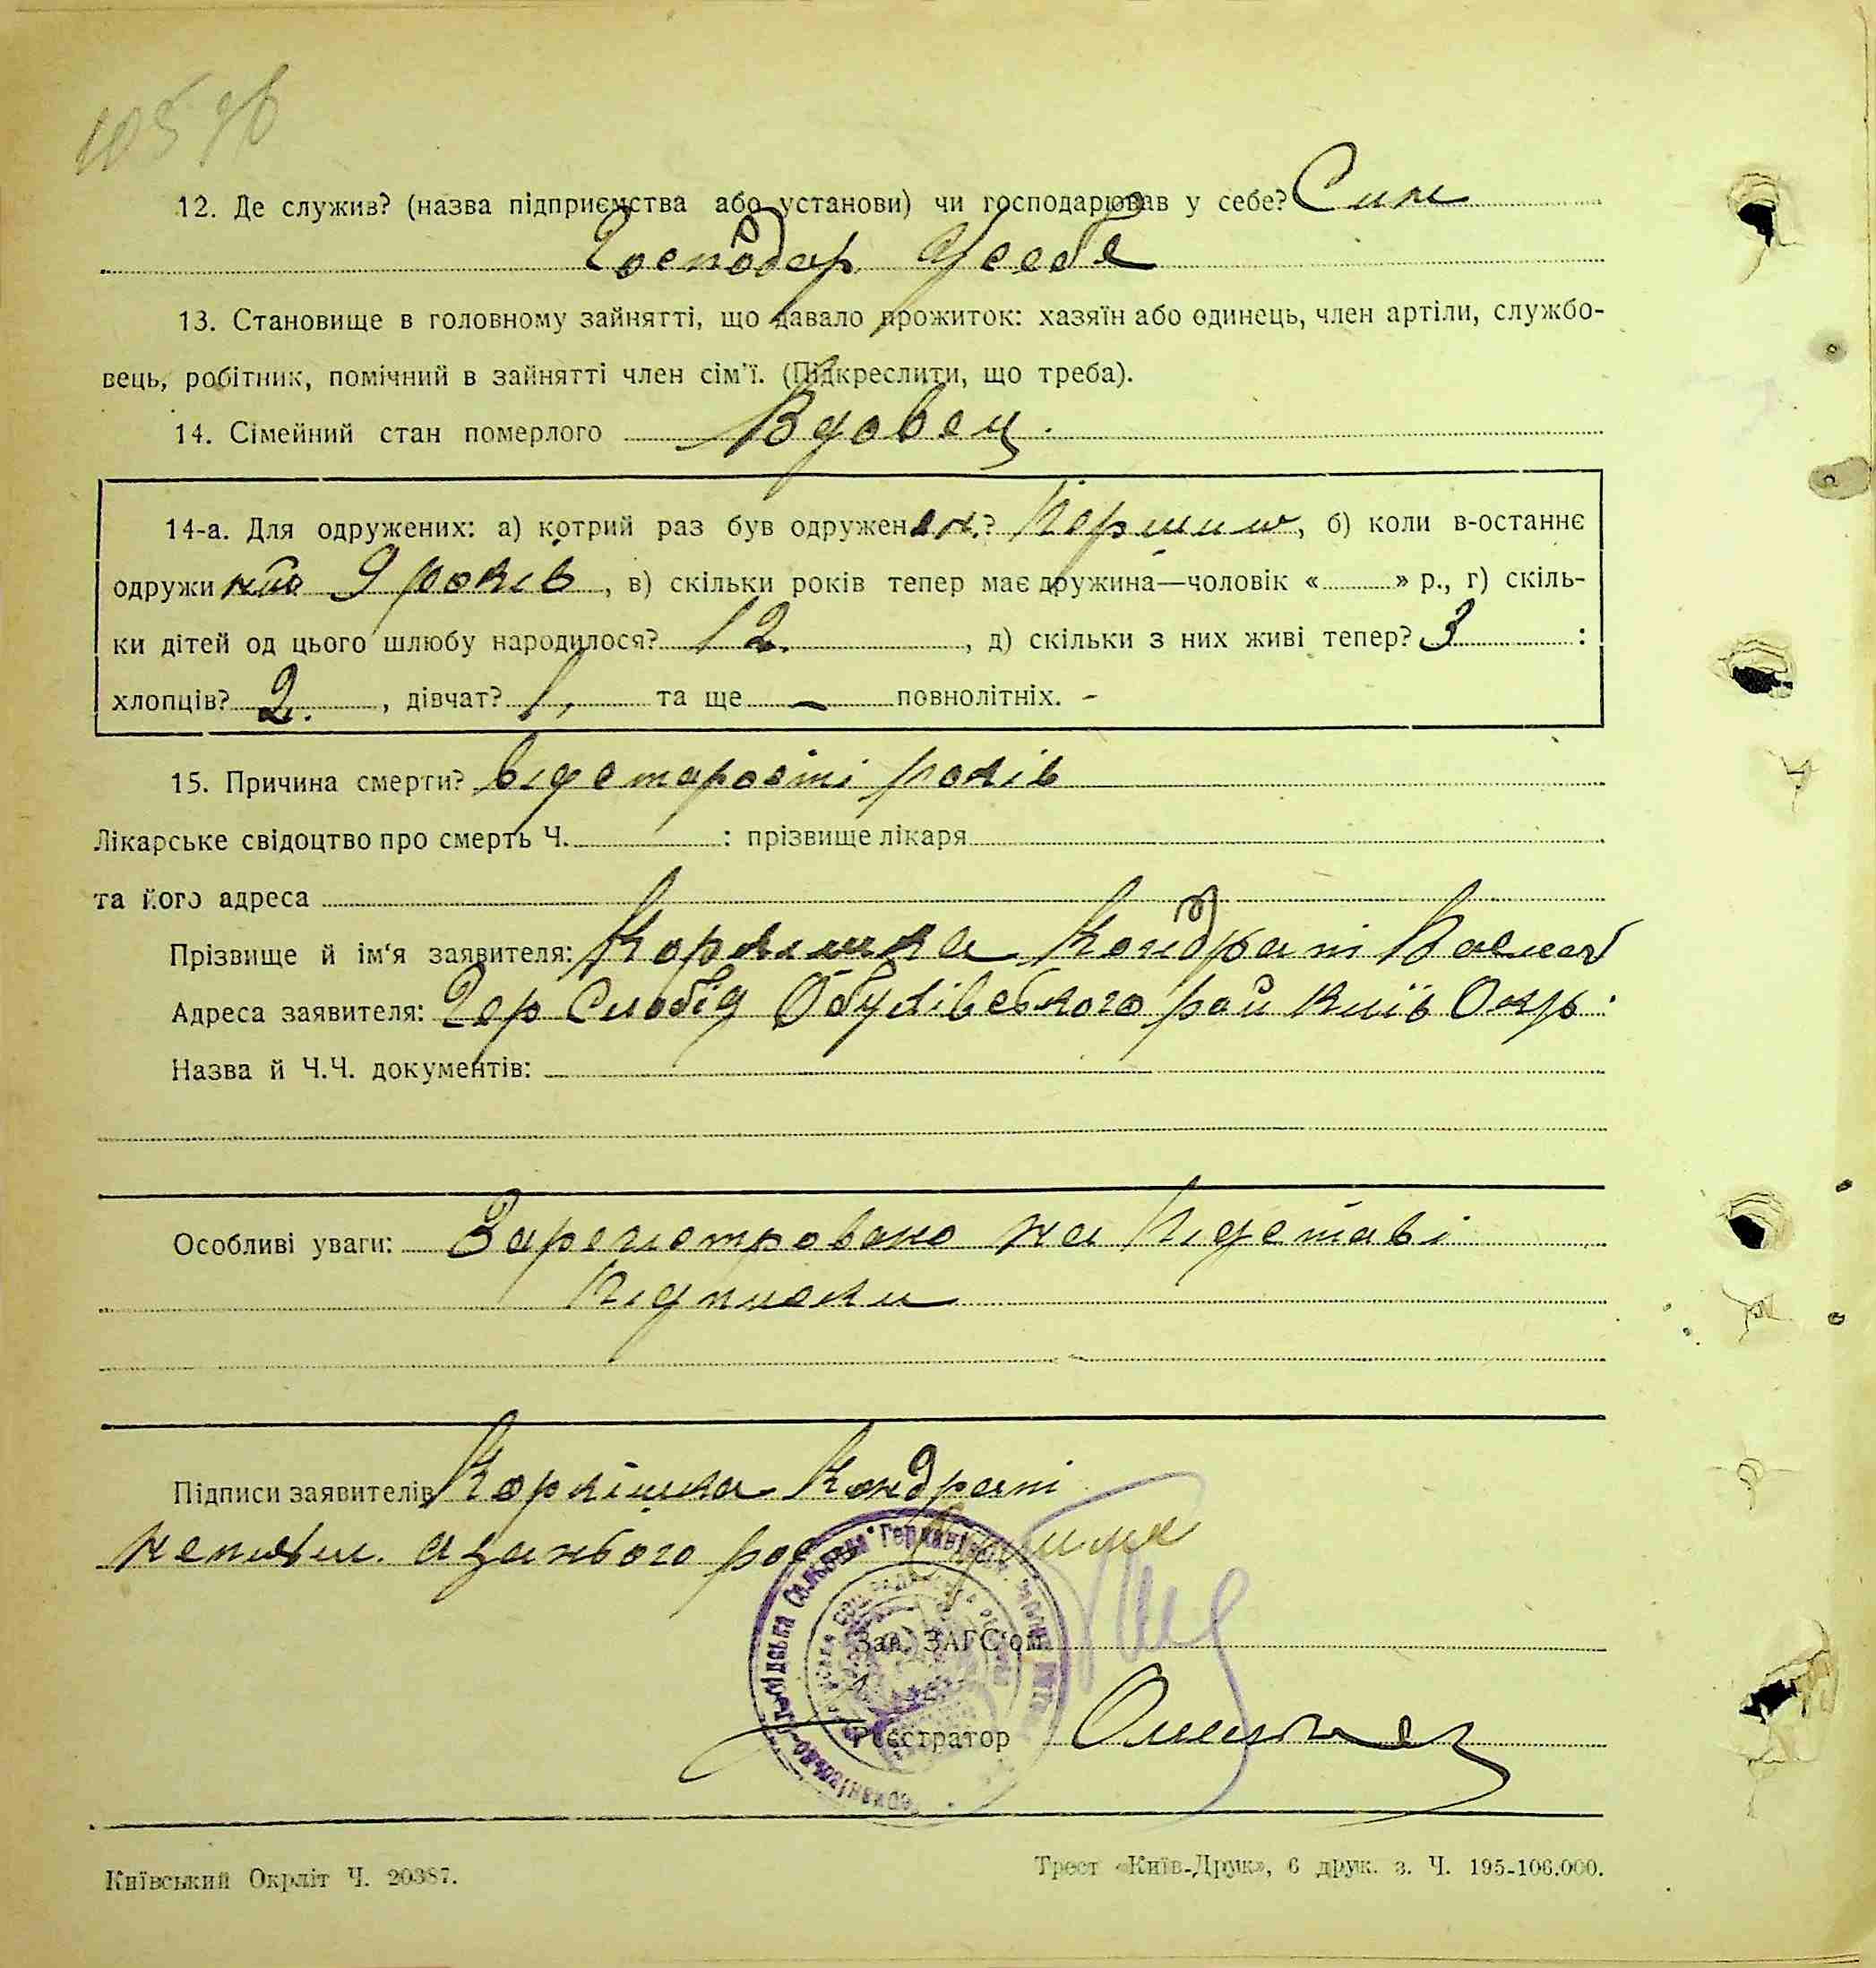 12. Де служив? (назва підприємства або установи) чи господарював у себе? Син
Господар Усебе
13. Становище в головному зайнятті, що давало прожиток: хазяїн або одинець, член артіли, службо-
вець, робітник, помічний в зайнятті член сім'ї. (Підкреслити, що треба).
14. Сімейний стан померлого Вдовец.
14-а. Для одружених: а) котрий раз був одружен ? Першим, б) коли в-останнє
одружи 9 років, в) скільки років тепер має дружина—чоловік « » р., г) скіль-
ки дітей од цього шлюбу народилося? 12., д) скільки з них живі тепер? 3 :
хлопців? 2., дівчат? 1, та ще — повнолітніх. -
15. Причина смерти? відстарості років
Лікарське свідоцтво про смерть Ч. : прізвище лікаря
та його адреса
Прізвище й ім'я заявителя: Коркішка Кондрат
Адреса заявителя: Гер Слобід Обухівського рай Київ Окр.
Назва й Ч.Ч. документів:
Особливі уваги: Зарегистровано на Підставі
Підписки
Підписи заявителів Коркішка Кондрат
Зав. ЗАГС'ом
Реєстратор
Київський Окрліт Ч. 20387.
Трест «Київ-Друк», 6 друк. з. Ч. 195-106.000.